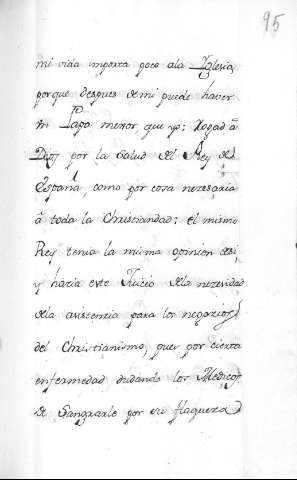 95
mi vida importa poco ala Iglesia,
porque despues de mi puede haver
un Papa menor, que yo: Rogad â
Dios por la Salud del Rey de
España, como por cosa necesaria
â toda la Christiandad; el mismo
Rey tenia la misma opinion de si
y hacia este Juicio dela necesidad
dela asistencia para los negocios
del Christianismo, pues por cierta
enfermedad dudando los Medicos
de Sangrarle por su flaqueza